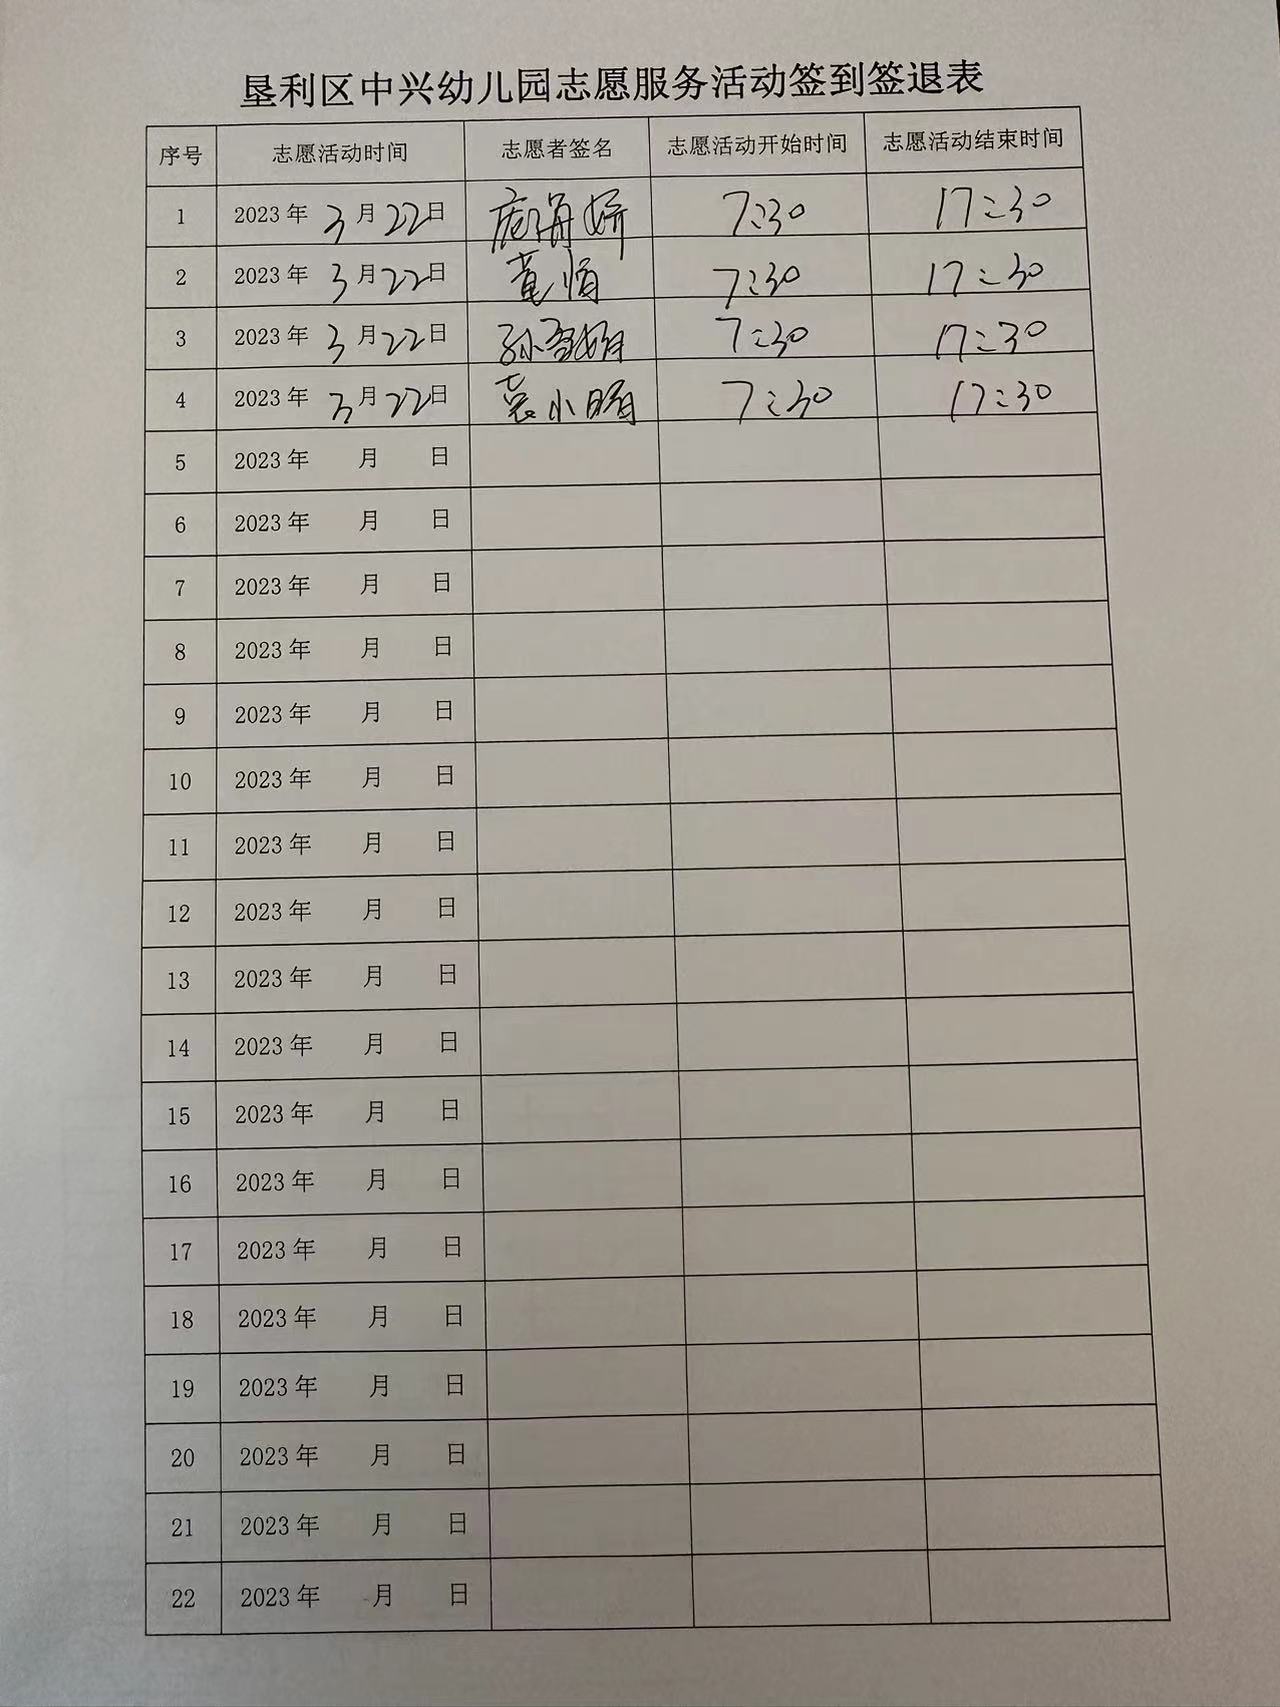 垦利区中兴幼儿园志愿服务活动签到签退表
序号 志愿活动时间 志愿者签名 志愿活动开始时间 志愿活动结束时间
1 2023年 3月22日 7:30 17:30
2 2023年 3月22日 7:30 17:30
3 2023年 3月22日 孙 7:30 17:30
4 2023年 3月22日 袁小 7:30 17:30
5 2023年 月 日
6 2023年 月 日
7 2023年 月 日
8 2023年 月 日
9 2023年 月 日
10 2023年 月 日
11 2023年 月 日
12 2023年 月 日
13 2023年 月 日
14 2023年 月 日
15 2023年 月 日
16 2023年 月 日
17 2023年 月 日
18 2023年 月 日
19 2023年 月 日
20 2023年 月 日
21 2023年 月 日
22 2023年 月 日